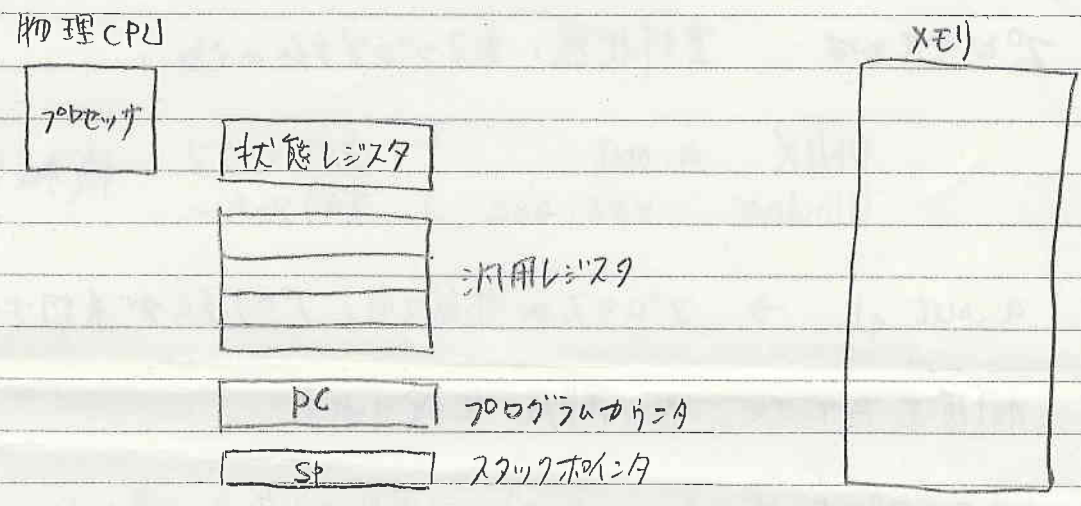 物理CPU
メモリ
プロセッサ
状態レジスタ
汎用レジスタ
PC
プログラムカウンタ
SP
スタックポインタ